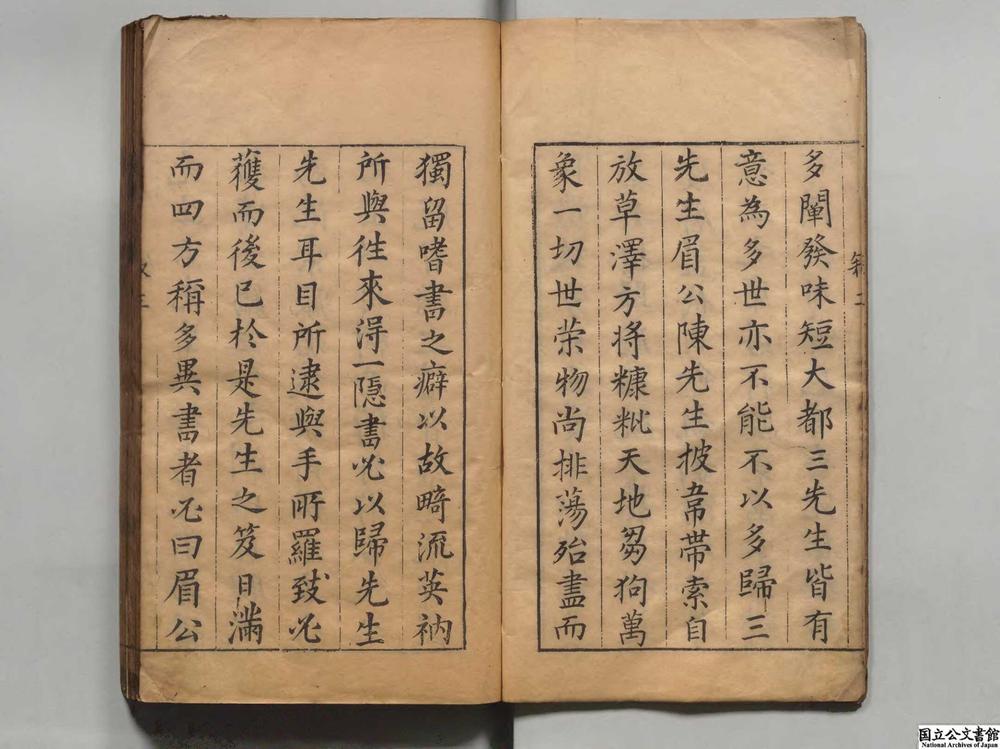 多闡發味短大都三先生皆有
意為多世亦不能不以多歸三
先生眉公陳先生披帬帶索自
放草澤方将糠粃天地芻狗萬
象一切世荣物尚排蕩殆盡而
獨留嗜書之癖以故畸流英衲
所與徃來淂一隱書必以歸先生
先生耳目所逮與手所羅致必
獲而後已於是先生之笈日滿
而四方稱多異書者必曰眉公
国立公文書館
National Archives of Japan